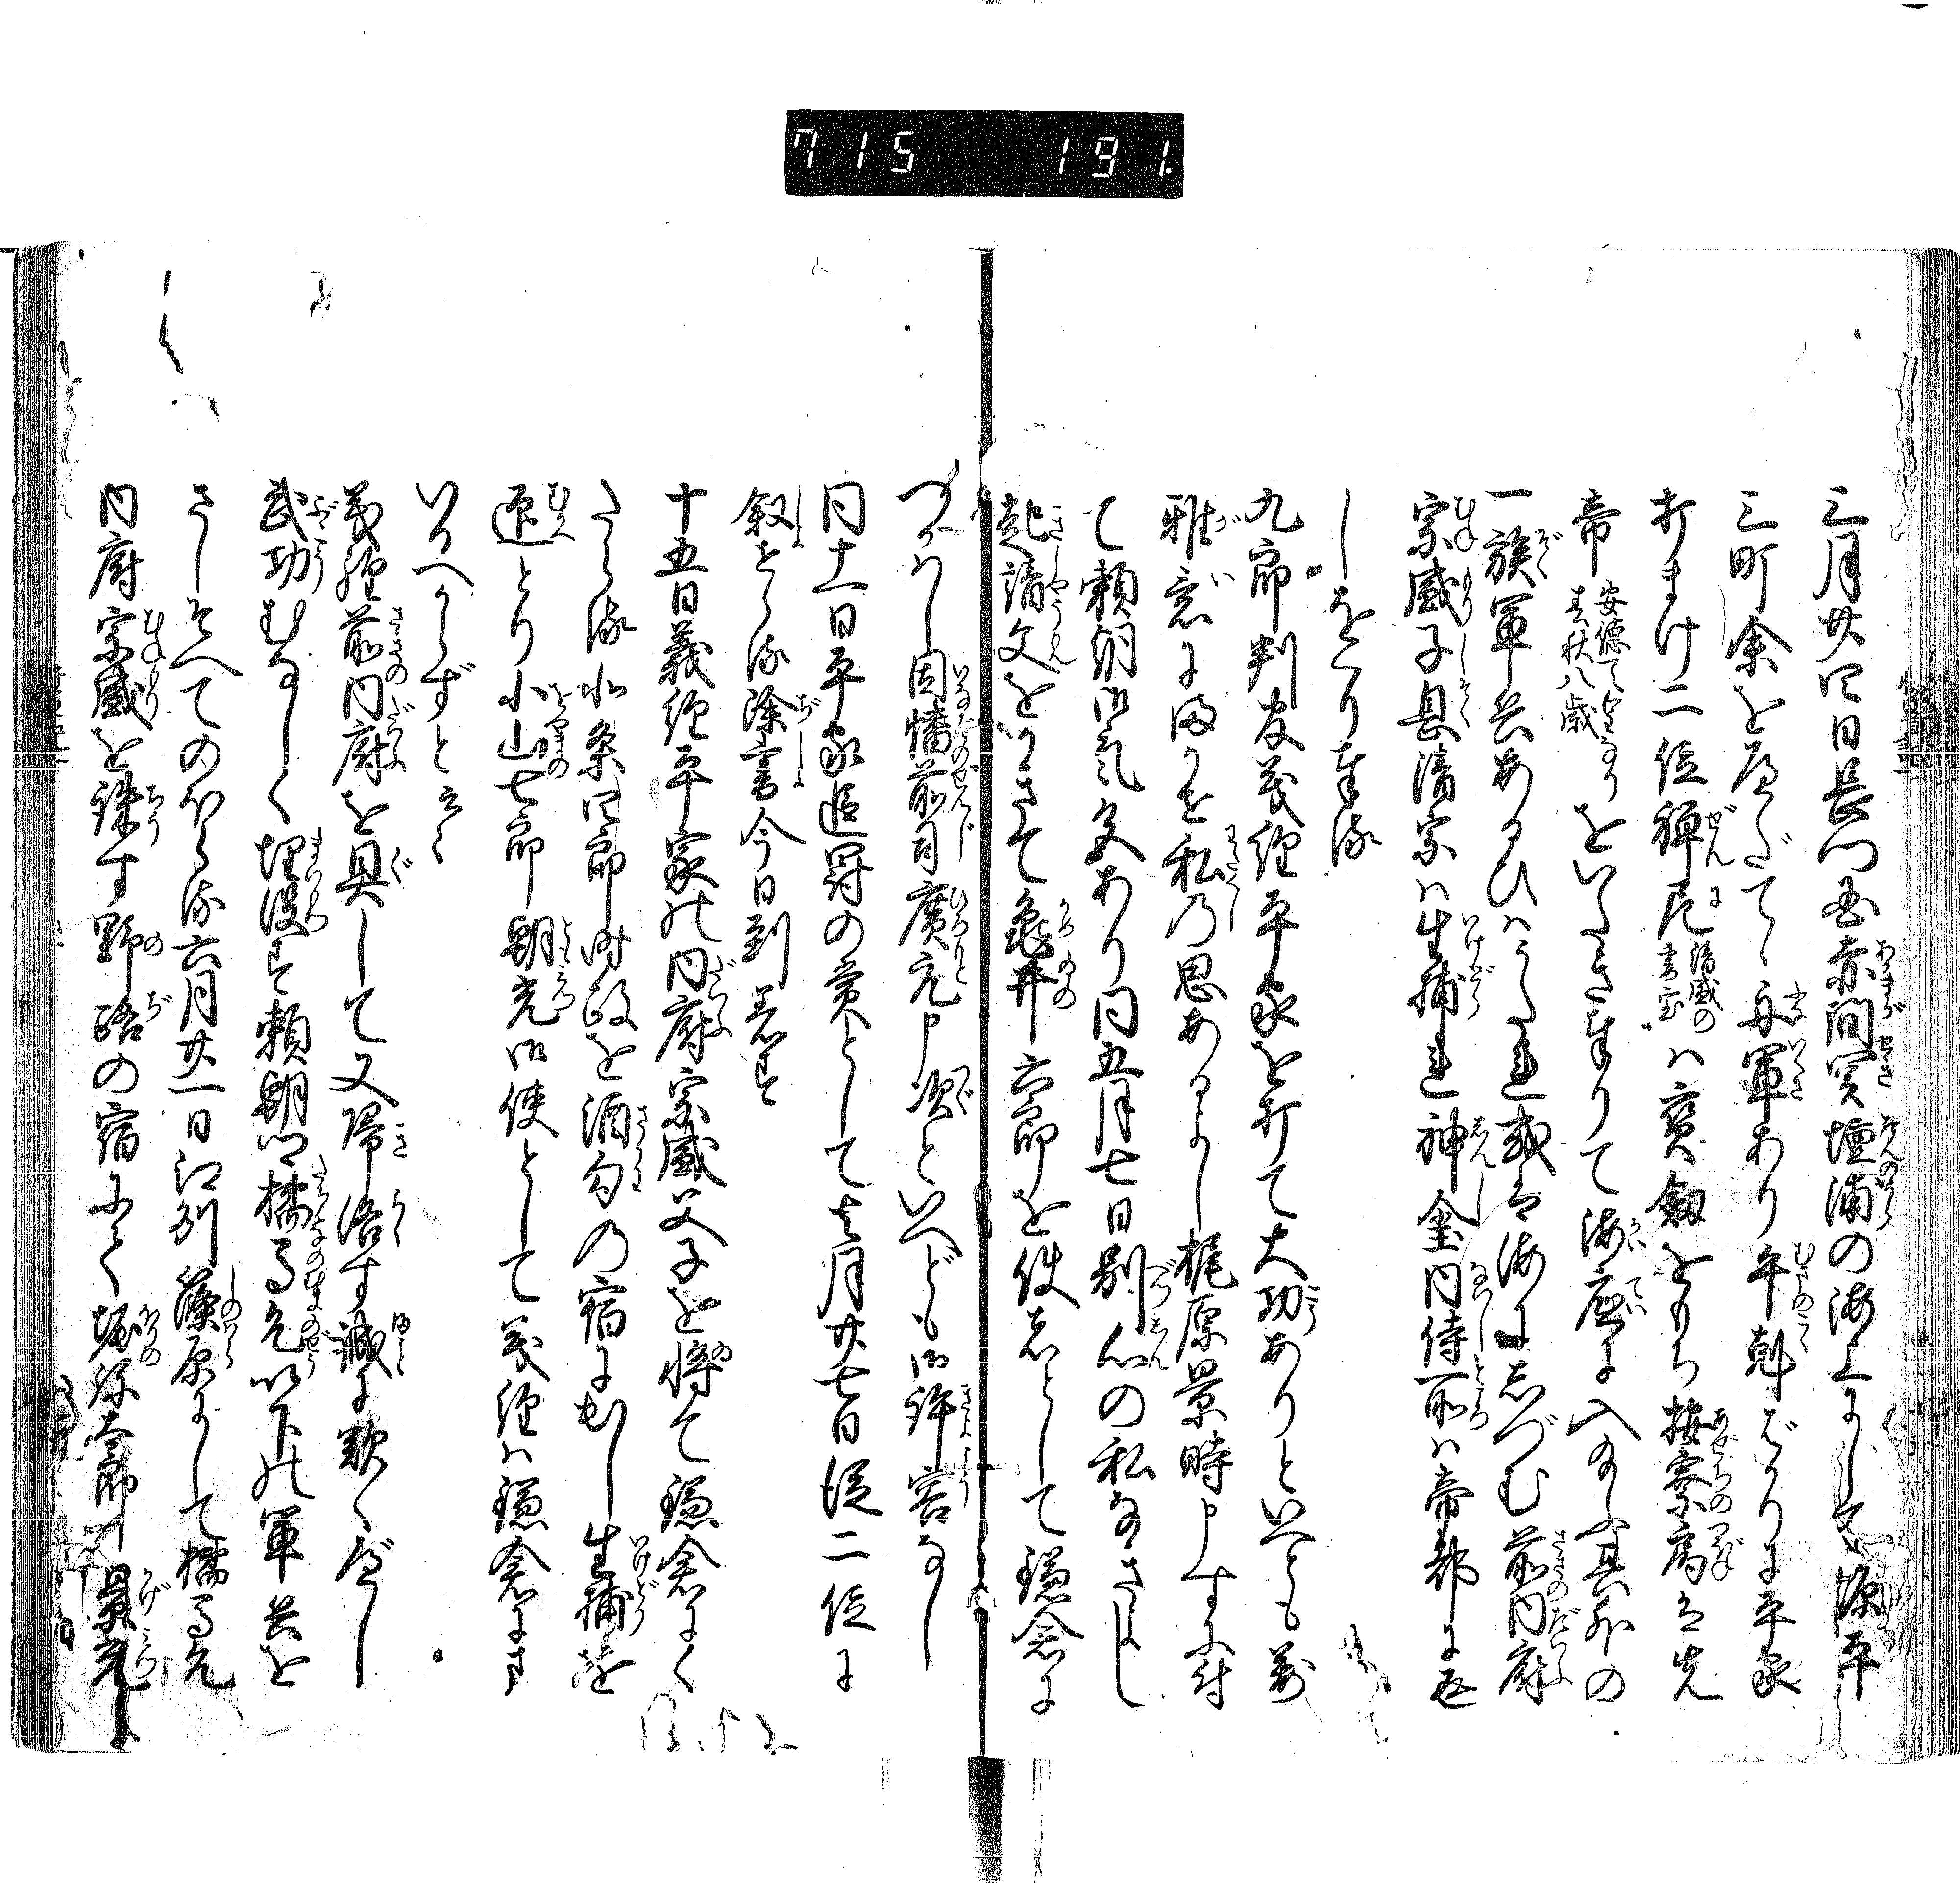 715 191.
三月廿四日長門国赤間関壇浦の海上にして源平
三町余をへだてゝ舟軍あり午剋ばかりに平家
打まけ二位禅尼清盛の妻室ハ宝剣をもち按察局ハ先
帝安徳天皇なり春秋八歳をいたき奉りて海底に入給ふ其外の
一族軍兵あるひハうたれ或ハ海にしづむ前内府
宗盛子息清宗ハ生捕れ神璽内侍所ハ帝都に返
しをくり奉る
九郎判官義経平家を打て大功ありといへとも万
雅意にまかせ私の思あるよし梶原景時申すに付
て頼朝御気色あり同五月七日別心の私なきよし
起請文をかきて亀井六郎を使者として鎌倉に
つかハし因幡前司広元申次といへども御許容なし
同十一日平家追罸の賞として去月廿七日従二位に
叙せらる除書今日到着す
十五日義経平家の内府宗盛父子を将て鎌倉にく
たる北条四郎時政を酒匂の宿にむし生捕を
迎とり小山七郎朝光御使として義経ハ鎌倉にま
いるへからずと云々
義経前内府を具して又帰洛す誠に歎くべし
武功むなしく埋没す頼朝又橘馬允以下の軍兵を
さしそへてのほらる六月廿一日江州篠原にして橘馬允
内府宗盛を誅す野路の宿にて堀弥太郎景光に